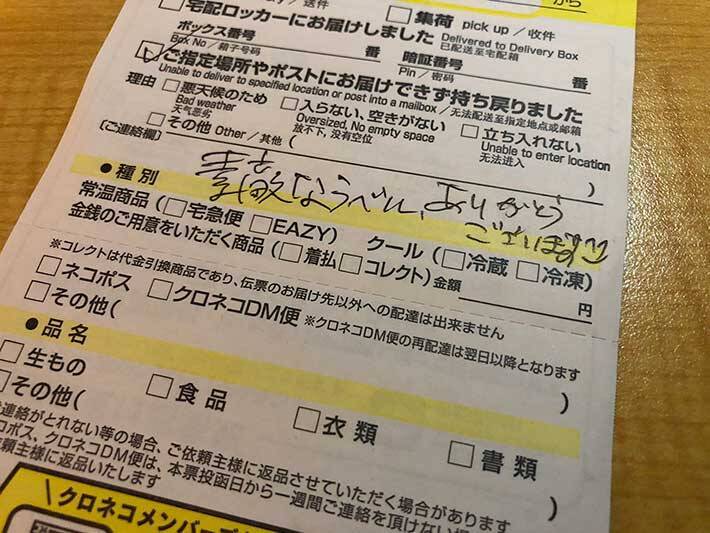 から
送件
□宅配ロッカーにお届けしました Delivered to Delivery Box / 已配送至宅配箱
□集荷 pick up / 收件
ボックス番号 Box No / 箱子号码 番 暗証番号 Pin / 密码 番
☑ご指定場所やポストにお届けできず持ち戻りました
Unable to deliver to specified location or post into a mailbox / 无法配送至指定地点或邮箱
理由 □悪天候のため Bad weather 天气恶劣 □入らない、空きがない Oversized, No empty space 放不下，没有空位 □立ち入れない Unable to enter location 无法进入
□その他 Other / 其他 ( )
〔ご連絡欄〕
素敵なラベル、ありがとう
ございます
●種別
常温商品（□宅急便 □EAZY） クール（□冷蔵 □冷凍）
金銭のご用意をいただく商品（□着払 □コレクト）金額 円
※コレクトは代金引換商品であり、伝票のお届け先以外への配達は出来ません
□ネコポス □クロネコDM便 ※クロネコDM便の再配達は翌日以降となります
□その他( )
●品名
□生もの □食品 □衣類 □書類
□その他( )
連絡がとれない等の場合、ご依頼主様に返品させていただく場合があります
コポス、クロネコDM便は、本票投函日から一週間ご連絡を頂けない場
依頼主様に返品いたします
\クロネコメンバーズ